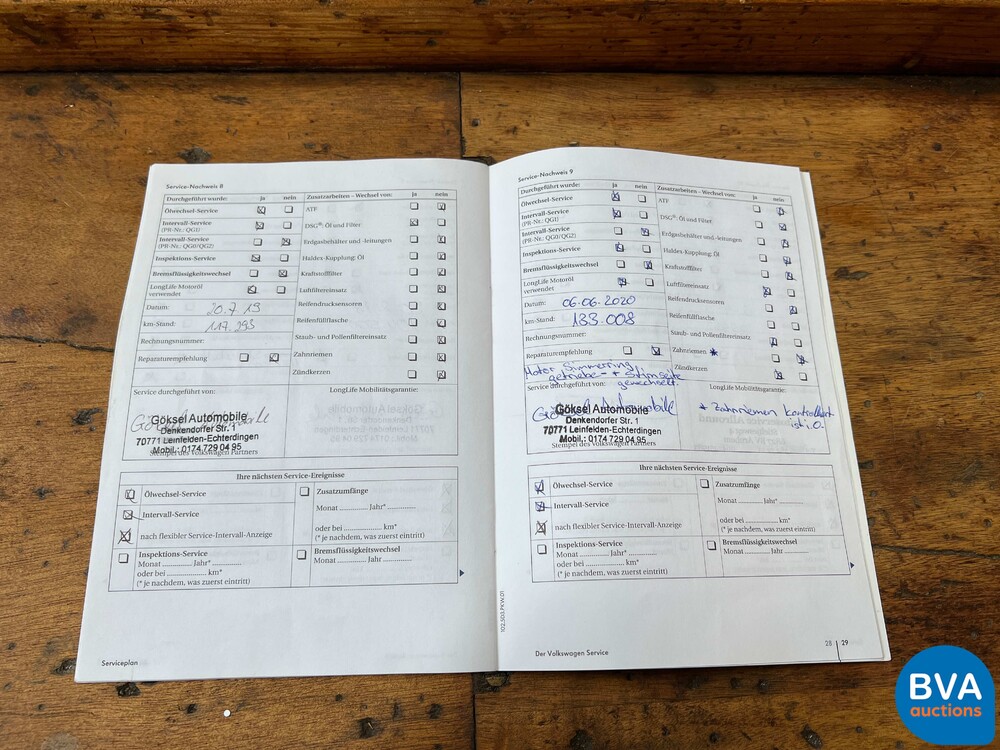 Service-Nachweis 8
Durchgeführt wurde: ja nein
Zusatzarbeiten – Wechsel von: ja nein
Ölwechsel-Service
ATF
Intervall-Service
(PR-Nr.: QG1)
DSG®: Öl und Filter
Intervall-Service
(PR-Nr.: QG0/QG2)
Erdgasbehälter und -leitungen
Inspektions-Service
Haldex-Kupplung: Öl
Bremsflüssigkeitswechsel
Kraftstofffilter
LongLife Motoröl
verwendet
Luftfiltereinsatz
Datum: 20.7.19
Reifendrucksensoren
km-Stand: 117.293
Reifenfüllflasche
Rechnungsnummer:
Staub- und Pollenfiltereinsatz
Reparaturempfehlung
Zahnriemen
Zündkerzen
Service durchgeführt von:
LongLife Mobilitätsgarantie:
Göksel Automobile
Denkendorfer Str. 1
70771 Leinfelden-Echterdingen
Mobil.: 0174 729 04 95
Stempel des Volkswagen Partners
Ihre nächsten Service-Ereignisse
Ölwechsel-Service
Intervall-Service
nach flexibler Service-Intervall-Anzeige
Zusatzumfänge
Monat ............ Jahr* ............
oder bei ................. km*
(* je nachdem, was zuerst eintritt)
Inspektions-Service
Monat ............ Jahr* ............
oder bei ................. km*
(* je nachdem, was zuerst eintritt)
Bremsflüssigkeitswechsel
Monat ............ Jahr ............
Serviceplan
Service-Nachweis 9
Durchgeführt wurde: ja nein
Zusatzarbeiten – Wechsel von: ja nein
Ölwechsel-Service
ATF
Intervall-Service
(PR-Nr.: QG1)
DSG®: Öl und Filter
Intervall-Service
(PR-Nr.: QG0/QG2)
Erdgasbehälter und -leitungen
Inspektions-Service
Haldex-Kupplung: Öl
Bremsflüssigkeitswechsel
Kraftstofffilter
LongLife Motoröl
verwendet
Luftfiltereinsatz
Datum: 06.06.2020
Reifendrucksensoren
km-Stand: 133.008
Reifenfüllflasche
Rechnungsnummer:
Staub- und Pollenfiltereinsatz
Reparaturempfehlung
Zahnriemen *
Zündkerzen
Motor Simmerring
getriebe- + Stirnseite
gewechselt.
Service durchgeführt von:
LongLife Mobilitätsgarantie:
Göksel Automobile
Göksel Automobile
Denkendorfer Str. 1
70771 Leinfelden-Echterdingen
Mobil.: 0174 729 04 95
Stempel des Volkswagen Partners
* Zahnriemen kontrolliert
ist i.O.
Ihre nächsten Service-Ereignisse
Ölwechsel-Service
Intervall-Service
nach flexibler Service-Intervall-Anzeige
Zusatzumfänge
Monat ............ Jahr* ............
oder bei ................. km*
(* je nachdem, was zuerst eintritt)
Inspektions-Service
Monat ............ Jahr* ............
oder bei ................. km*
(* je nachdem, was zuerst eintritt)
Bremsflüssigkeitswechsel
Monat ............ Jahr ............
Der Volkswagen Service
28 29
BVA
auctions